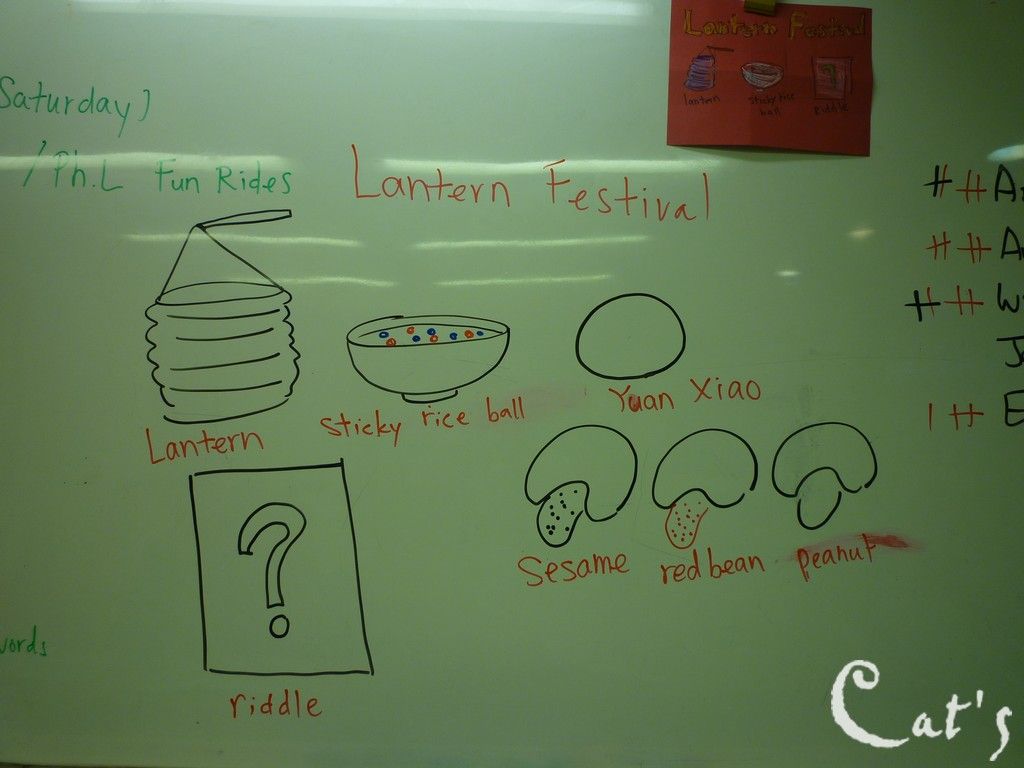 Lantern Festival
lantern
sticky rice
ball
riddle
Saturday)
/Ph.L Fun Rides
Lantern Festival
Lantern
sticky rice ball
Yuan Xiao
?
riddle
Sesame
red bean
peanut
words
Cat's